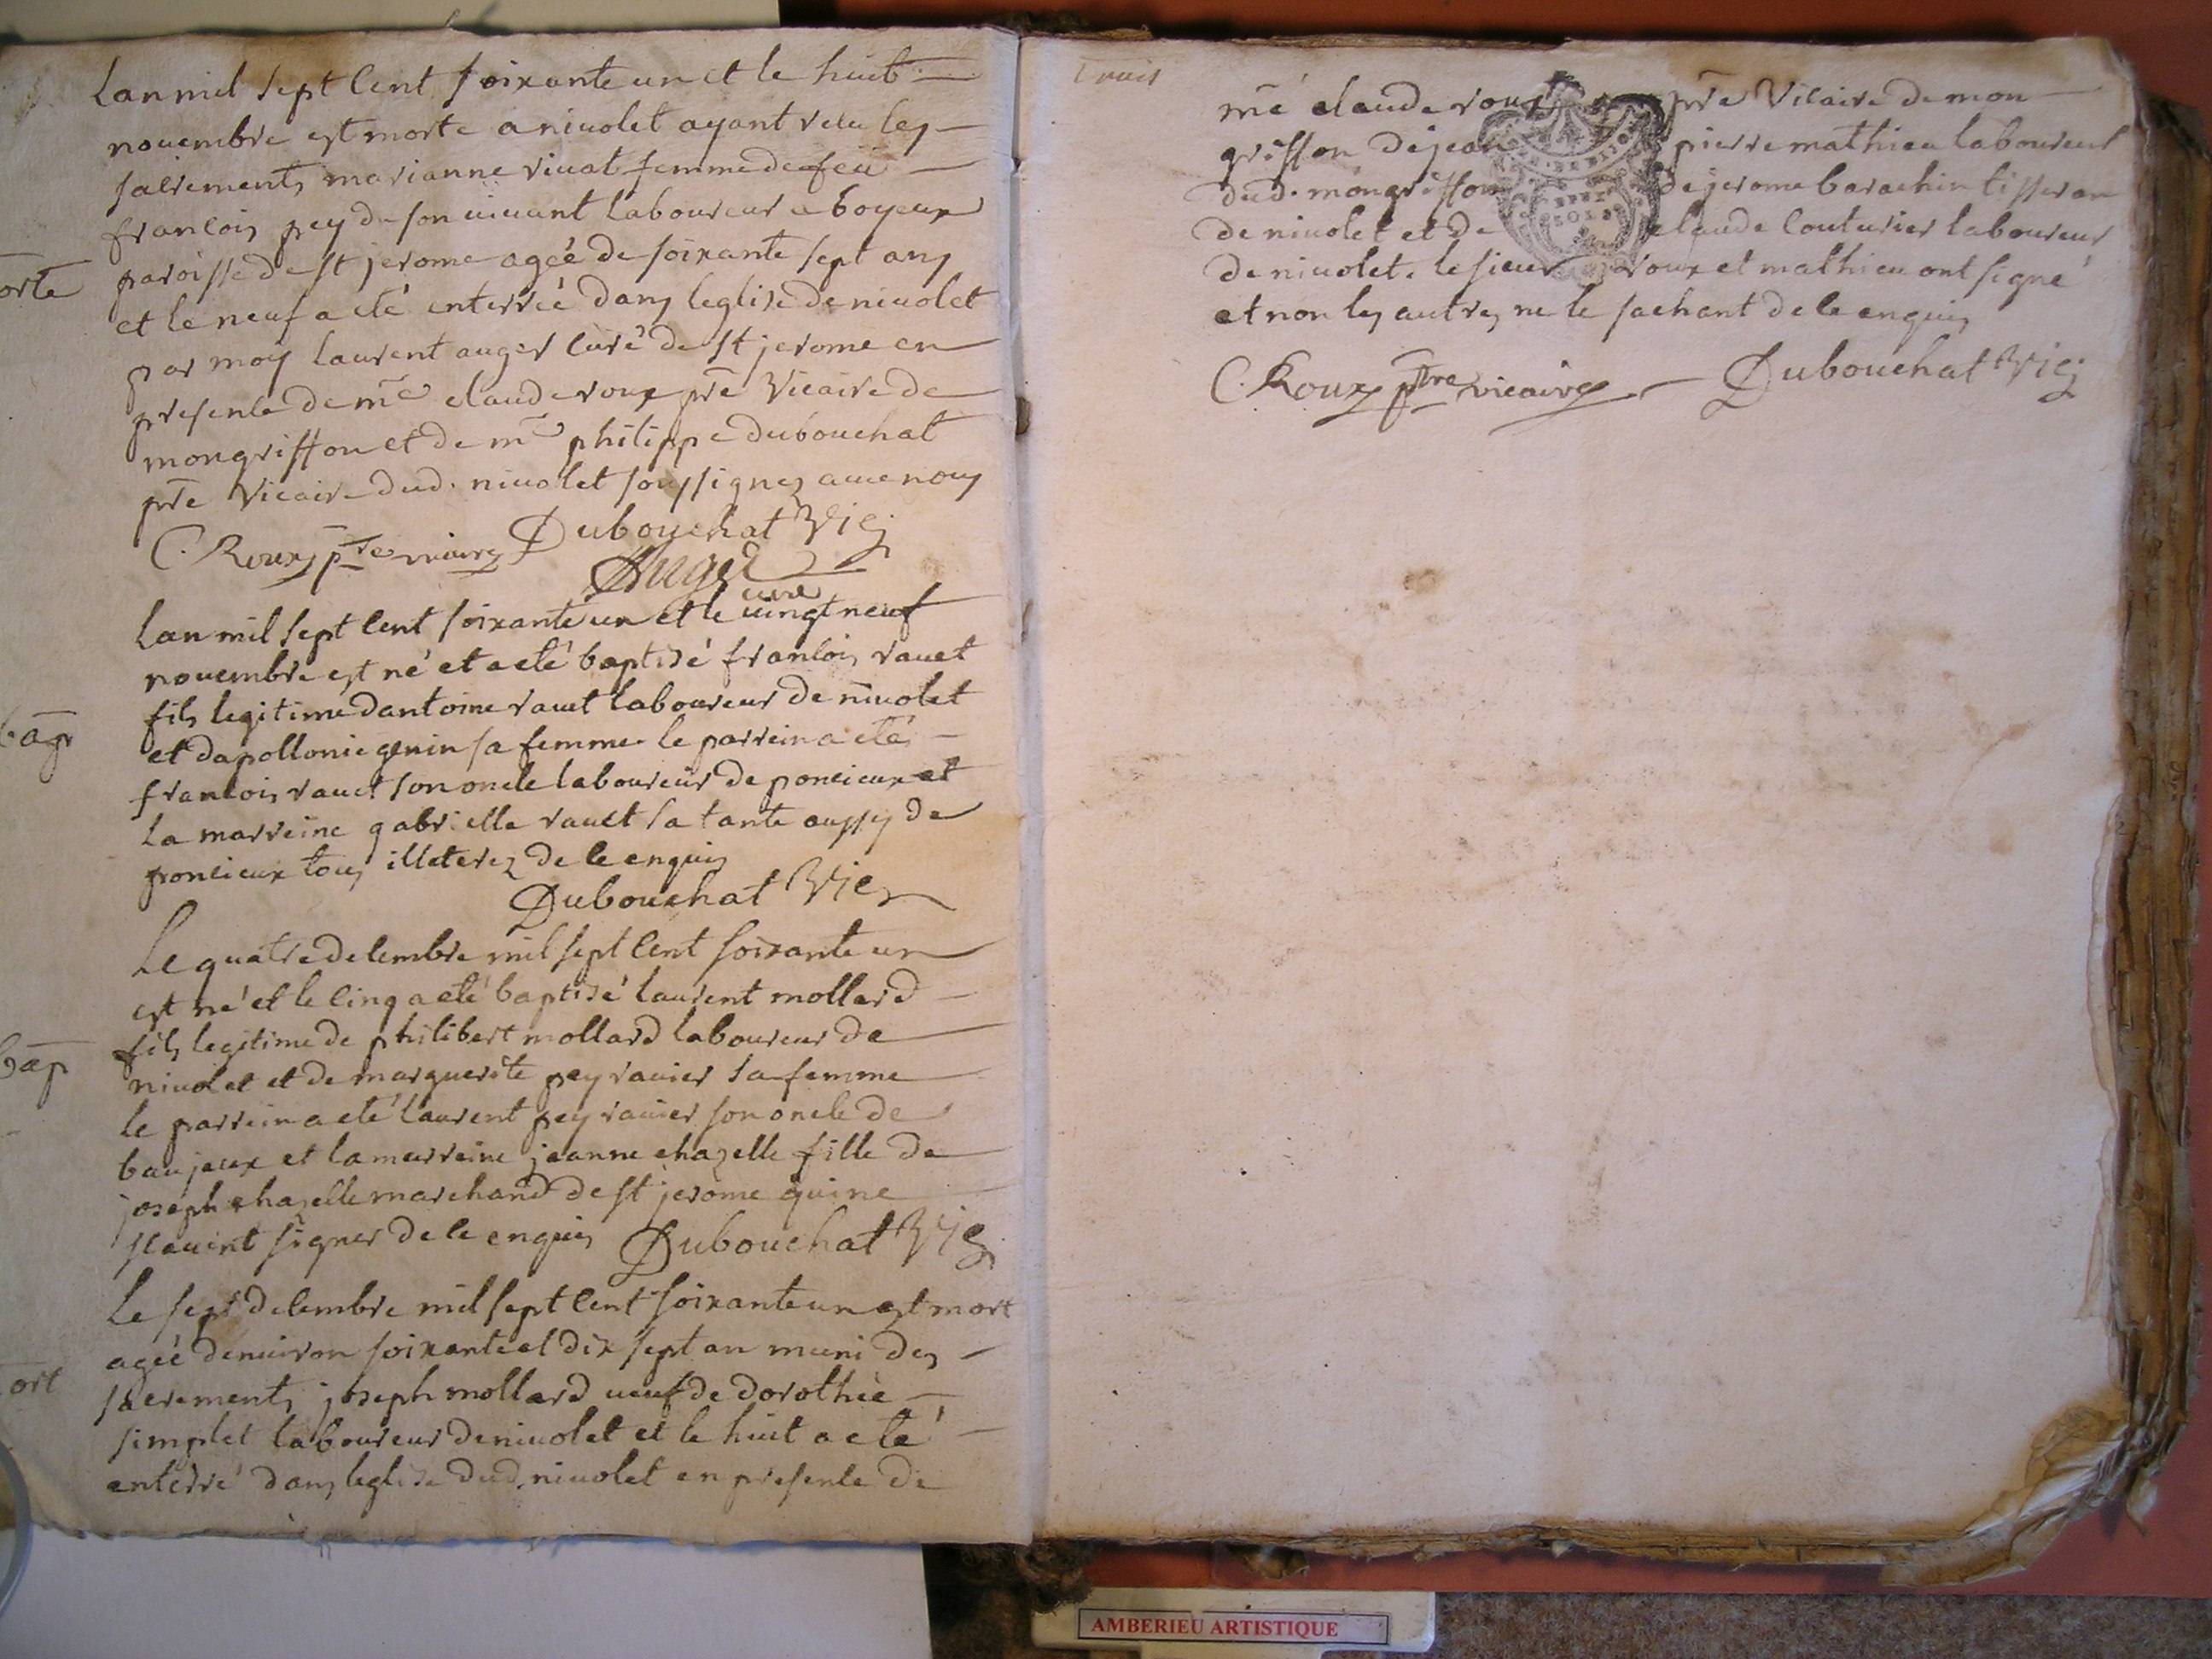 Lan mil sept cent soixante un et le huit
novembre est morte a nivolet ayant recu les
sacrements marianne rivat femme de feu
francois pey de son vivant laboureur a boyeux
paroisse de st jerome ageé de soixante sept ans
orte
et le neuf a eté enterreé dans leglise de nivolet
par moy laurent auger curé de st jerome en
presence de me claude roux pre vicaire de
mongriffon et de me philippe dubouchat
pre vicaire dud. nivolet soussignes avec nous
C. Roux ptre vicaire Dubouchat Vic
Auger
curé
Lan mil sept cent soixante un et le vingt neuf
novembre est né et a eté baptisé francois ravet
fils legitime dantoine ravet laboureur de nivolet
bap
et dapollonie genin sa femme le parrein a eté
francois ravet son oncle laboureur de poncieux et
la marreine gabrielle ravet sa tante aussy de
poncieux tous illeterez de ce enquis
Dubouchat Vic
Le quatre decembre mil sept cent soixante un
est né et le cinq a eté baptisé laurent mollard
fils legitime de philibert mollard laboureur de
bap
nivolet et de marguerite pey ravier sa femme
le parrein a eté laurent pey ravier son oncle de
baujeux et la marreine jeanne chazelle fille de
joseph chazelle marchand de st jerome qui ne
scavent signer de ce enquis Dubouchat Vic
Le sept decembre mil sept cent soixante un est mort
ageé denviron soixante et dix sept an muni des
ort
sacrements joseph mollard veuf de dorotheé
simplet laboureur de nivolet et le huit a eté
enterré dans leglise dud. nivolet en presence de
me claude roux pre Vicaire de mon
griffon de jean pierre mathieu laboureur
dud. mongriffon de jerome barachin tisseran
de nivolet et de claude couturier laboureur
de nivolet. le sieur roux et mathieu ont signé
et non les autres ne le sachant de ce enquis
C. Roux ptre vicaire Dubouchat Vic
AMBERIEU ARTISTIQUE